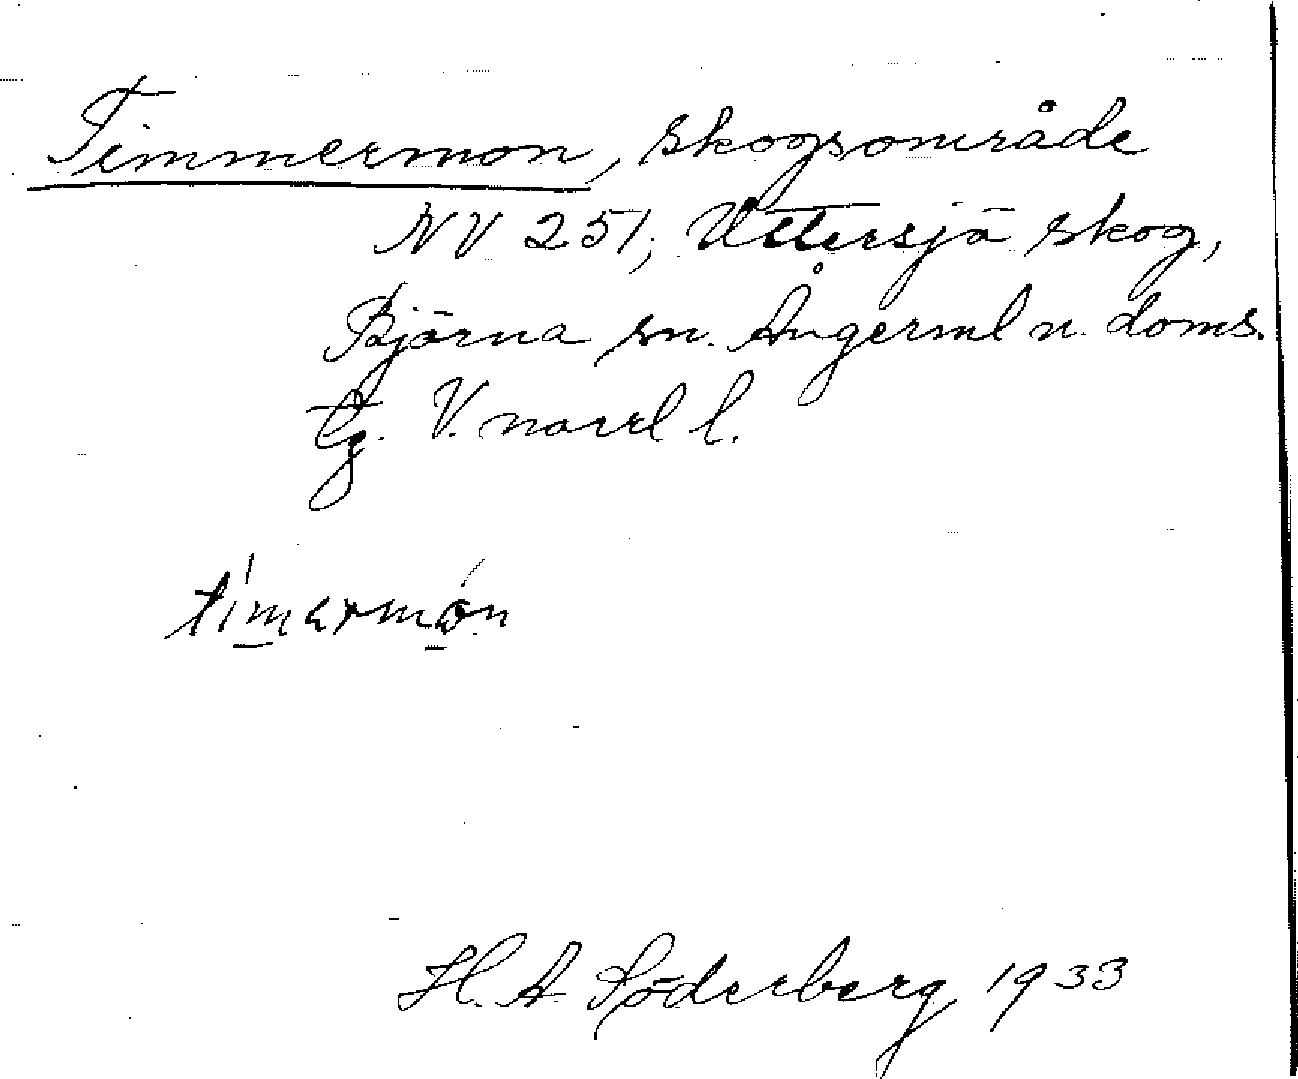 Timmermon, skogsområde
NV 251, Uttersjö skog,
Björna sn. Ångerml n. doms.
tg. V. norrl l.
timərmón
H. A. Söderberg 1933